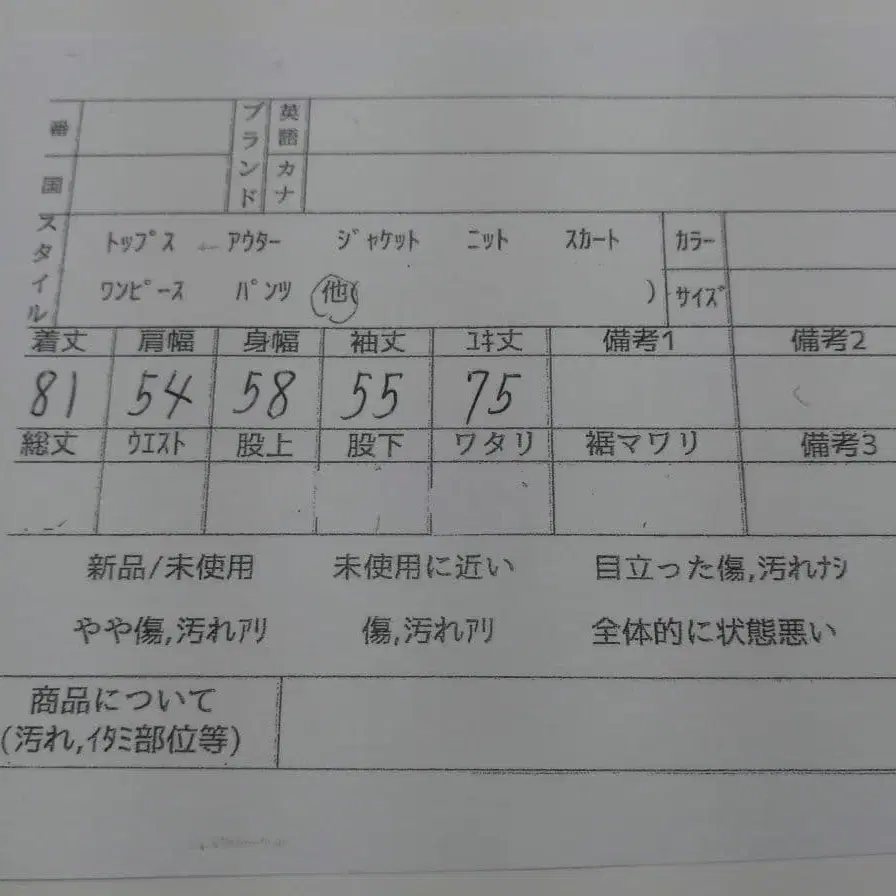 番 ブランド 英語
国 カナ
スタイル トップス アウター ジャケット ニット スカート カラー
ワンピース パンツ 他( ) サイズ
着丈 肩幅 身幅 袖丈 ユキ丈 備考1 備考2
81 54 58 55 75
総丈 ウエスト 股上 股下 ワタリ 裾マワリ 備考3
新品/未使用 未使用に近い 目立った傷,汚れナシ
やや傷,汚れアリ 傷,汚れアリ 全体的に状態悪い
商品について
(汚れ,イタミ部位等)